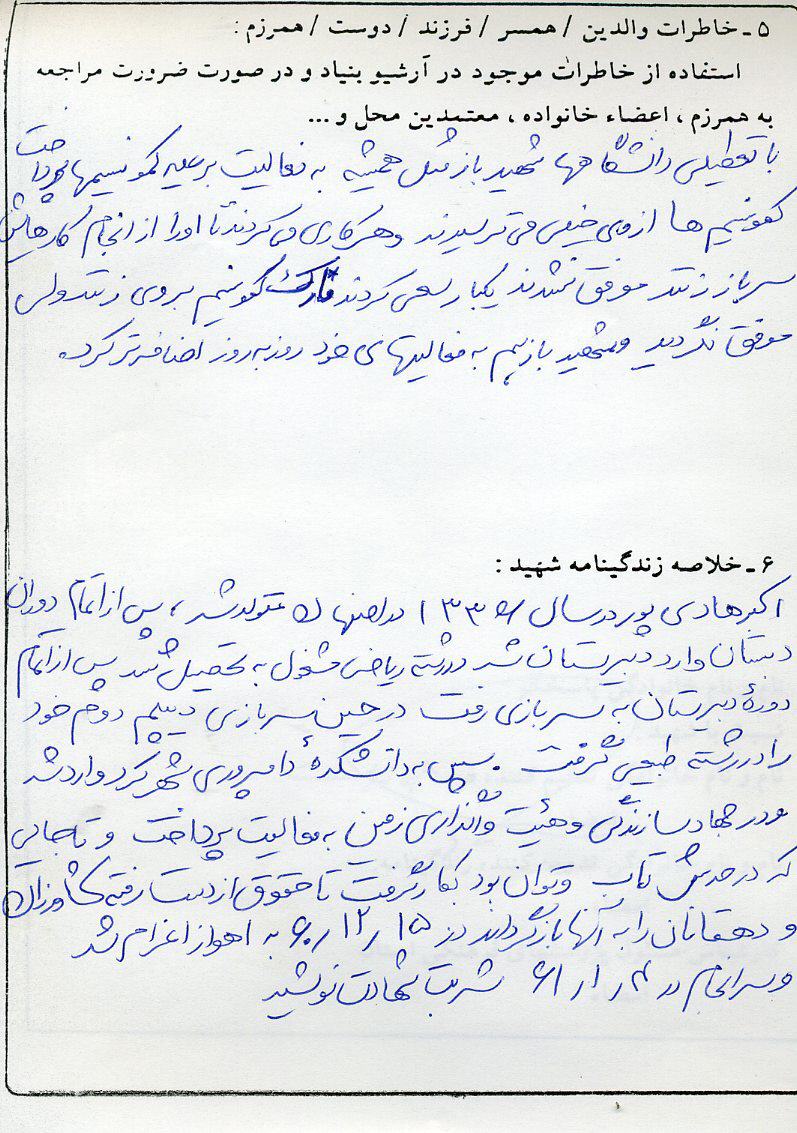 ۵ ـ خاطرات والدین / همسر / فرزند / دوست / همرزم :
استفاده از خاطرات موجود در آرشیو بنیاد و در صورت ضرورت مراجعه
به همرزم ، اعضاء خانواده ، معتمدین محل و ...
با تعطیلی دانشگاهها شهید باز مثل همیشه به فعالیت بر علیه کمونیسمها پرداخت
کمونیسم ها از وی خیلی می ترسیدند و هر کاری می کردند تا او را از انجام کارهایش
سرباز زنند موفق نشدند یکبار سعی کردند کمونیسم بروی زنند ولی
موفق نگردید و شهید باز هم به فعالیتهای خود روز به روز اضافه تر کرد.
۶ ـ خلاصه زندگینامه شهید :
اکبر هادی پور در سال ۱۳۳۶ در اصفهان متولد شد ، پس از اتمام دوران
دبستان وارد دبیرستان شد در رشته ریاضی مشغول به تحصیل شد پس از اتمام
دورهٔ دبیرستان به سربازی رفت در حین سربازی دیپلم دوم خود
را در رشته طبیعی گرفت . سپس به دانشکدهٔ دامپروری شهر کرد وارد شد
و در جهاد سازندگی و هیئت واگذاری زمین به فعالیت پرداخت و تا جایی
که در حدش تاب و توان بود بکار گرفت تا حقوق از دست رفته کشاورزان
و دهقانان را به آنها بازگرداند در ۱۵ / ۱۲ / ۶۰ به اهواز اعزام شد
و سرانجام در ۴ / ۱ / ۶۱ شربت شهادت نوشید